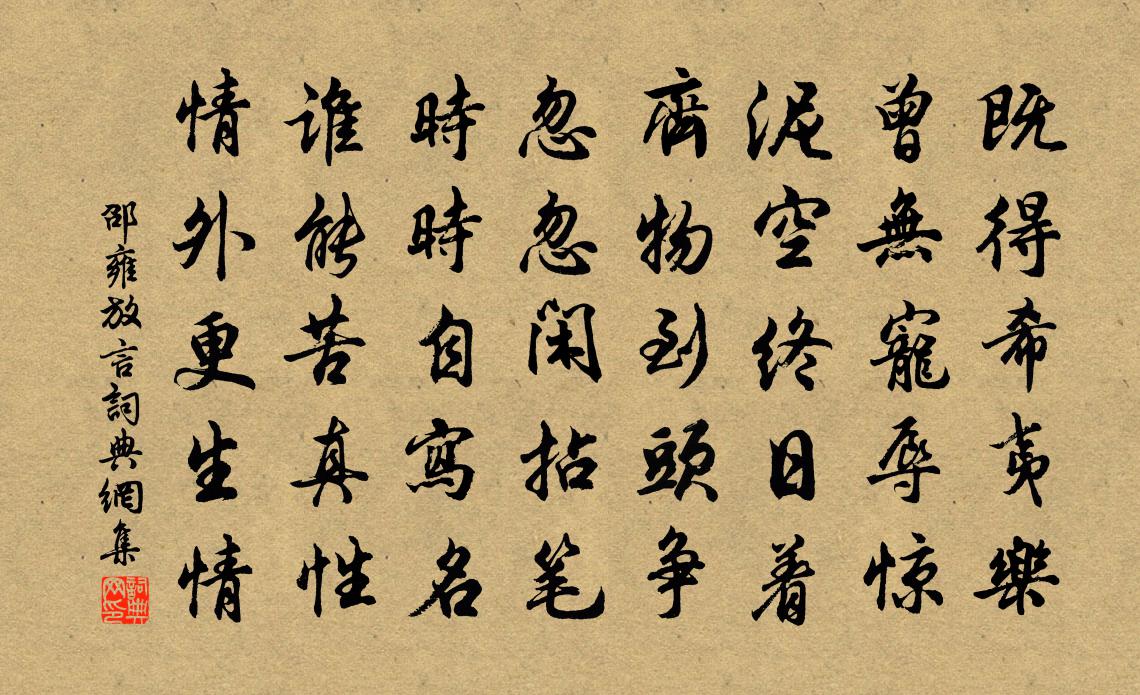 既得希夷樂
曾無寵辱惊
泥空終日着
齊物到頭争
忽忽閑拈笔
時時自寫名
誰能苦真性
情外更生情
邵雍放言詞典網集
詞典网印